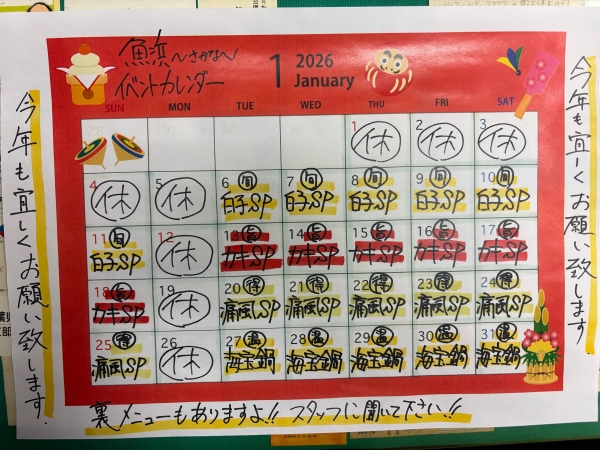 魚浜〜さかな〜
イベントカレンダー
1 2026 January
SUN MON TUE WED THU FRI SAT
1 休 2 休 3 休
4 休 5 休 6 旬 白子SP 7 旬 白子SP 8 旬 白子SP 9 旬 白子SP 10 旬 白子SP
11 旬 白子SP 12 休 13 旨 カキSP 14 旨 カキSP 15 旨 カキSP 16 旨 カキSP 17 旨 カキSP
18 旨 カキSP 19 休 20 得 痛風SP 21 得 痛風SP 22 得 痛風SP 23 得 痛風SP 24 得 痛風SP
25 得 痛風SP 26 休 27 温 海宝鍋 28 温 海宝鍋 29 温 海宝鍋 30 温 海宝鍋 31 温 海宝鍋
裏メニューもありますよ!! スタッフに聞いて下さい!!
今年も宜しくお願い致します。
今年も宜しくお願い致します